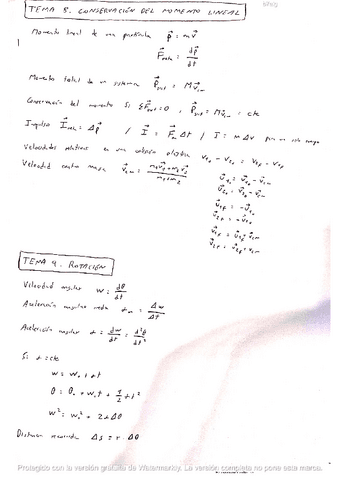 TEMA 8. CONSERVACIÓN DEL MOMENTO LINEAL
Momento lineal de una partícula p⃗ = m v⃗
F⃗neta = dp⃗/dt
Momento total de un sistema P⃗sist = M v⃗cm
Conservación del momento Si ΣF⃗ext = 0, P⃗sist = M v⃗cm = cte
Impulso I⃗neto = Δp⃗ / I⃗ = F⃗m Δt / I = m Δv
Velocidades relativas en una colisión elástica
Velocidad centro masa v⃗cm = (m₁v⃗₁ + m₂v⃗₂)/(m₁ + m₂)
TEMA 9. ROTACIÓN
Velocidad angular w = dθ/dt
Aceleración angular media αm = Δw/Δt
Aceleración angular α = dw/dt = d²θ/dt²
Si α = cte
w = w₀ + αt
θ = θ₀ + w₀t + 1/2 αt²
w² = w₀² + 2αΔθ
Distancia recorrida Δs = r·Δθ
Protegido con la versión gratuita de Watermarkly. La versión completa no pone esta marca.